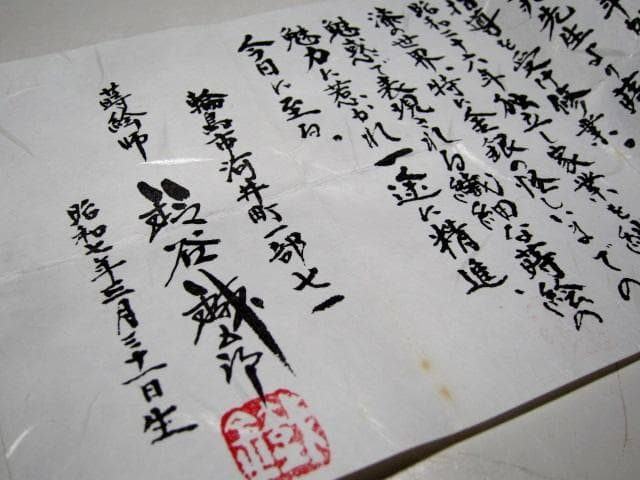 先生より蒔
指導を受け修業。
昭和三十六年独立し家業を
漆の世界、特に金銀の怪しいまでの
魅惑で表現される繊細な蒔絵の
魅力に惹かれ一途に精進
今日に至る。
輪島市河井町一部七一
蒔絵師
鈴谷鐵五郎
昭和七年三月三十一日生